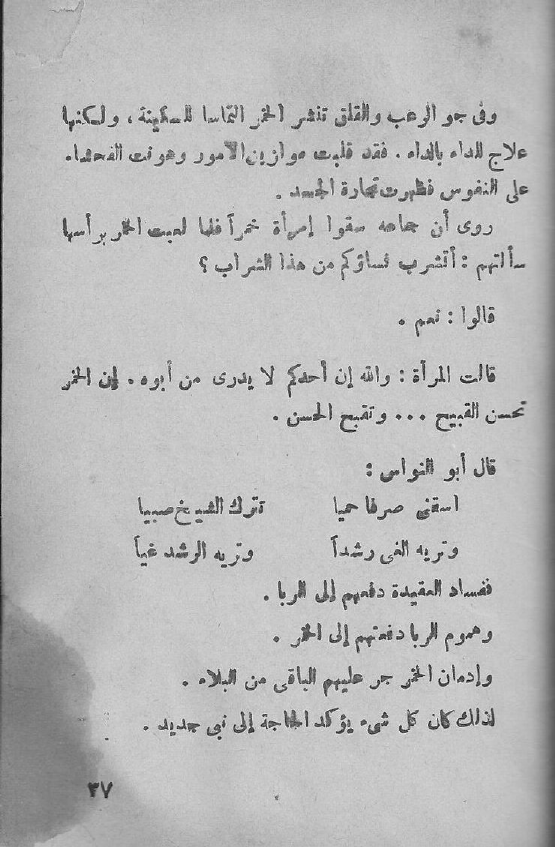 وفى جو الرعب والقلق تنشر الخمر التماسا للسكينة، ولكنها
علاج للداء بالداء. فقد قلبت موازين الأمور وهونت الفحشاء
على النفوس فظهرت تجارة الجسد.
روى أن جماعه سقوا إمرأة خمراً فلما لعبت الخمر برأسها
سألتهم: أتشرب نساؤكم من هذا الشراب؟
قالوا: نعم.
قالت المرأة: والله إن أحدكم لا يدرى من أبوه. إن الخمر
تحسن القبيح ... وتقبح الحسن.
قال أبو النواس:
اسقنى صرفا حميا تترك الشيخ صبيا
وتريه الغى رشداً وتريه الرشد غياً
ففساد العقيدة دفعهم إلى الربا.
وهموم الربا دفعتهم إلى الخمر.
وإدمان الخمر جر عليهم الباقى من البلاء.
لذلك كان كل شىء يؤكد الحاجة إلى نبى جديد.
٣٧